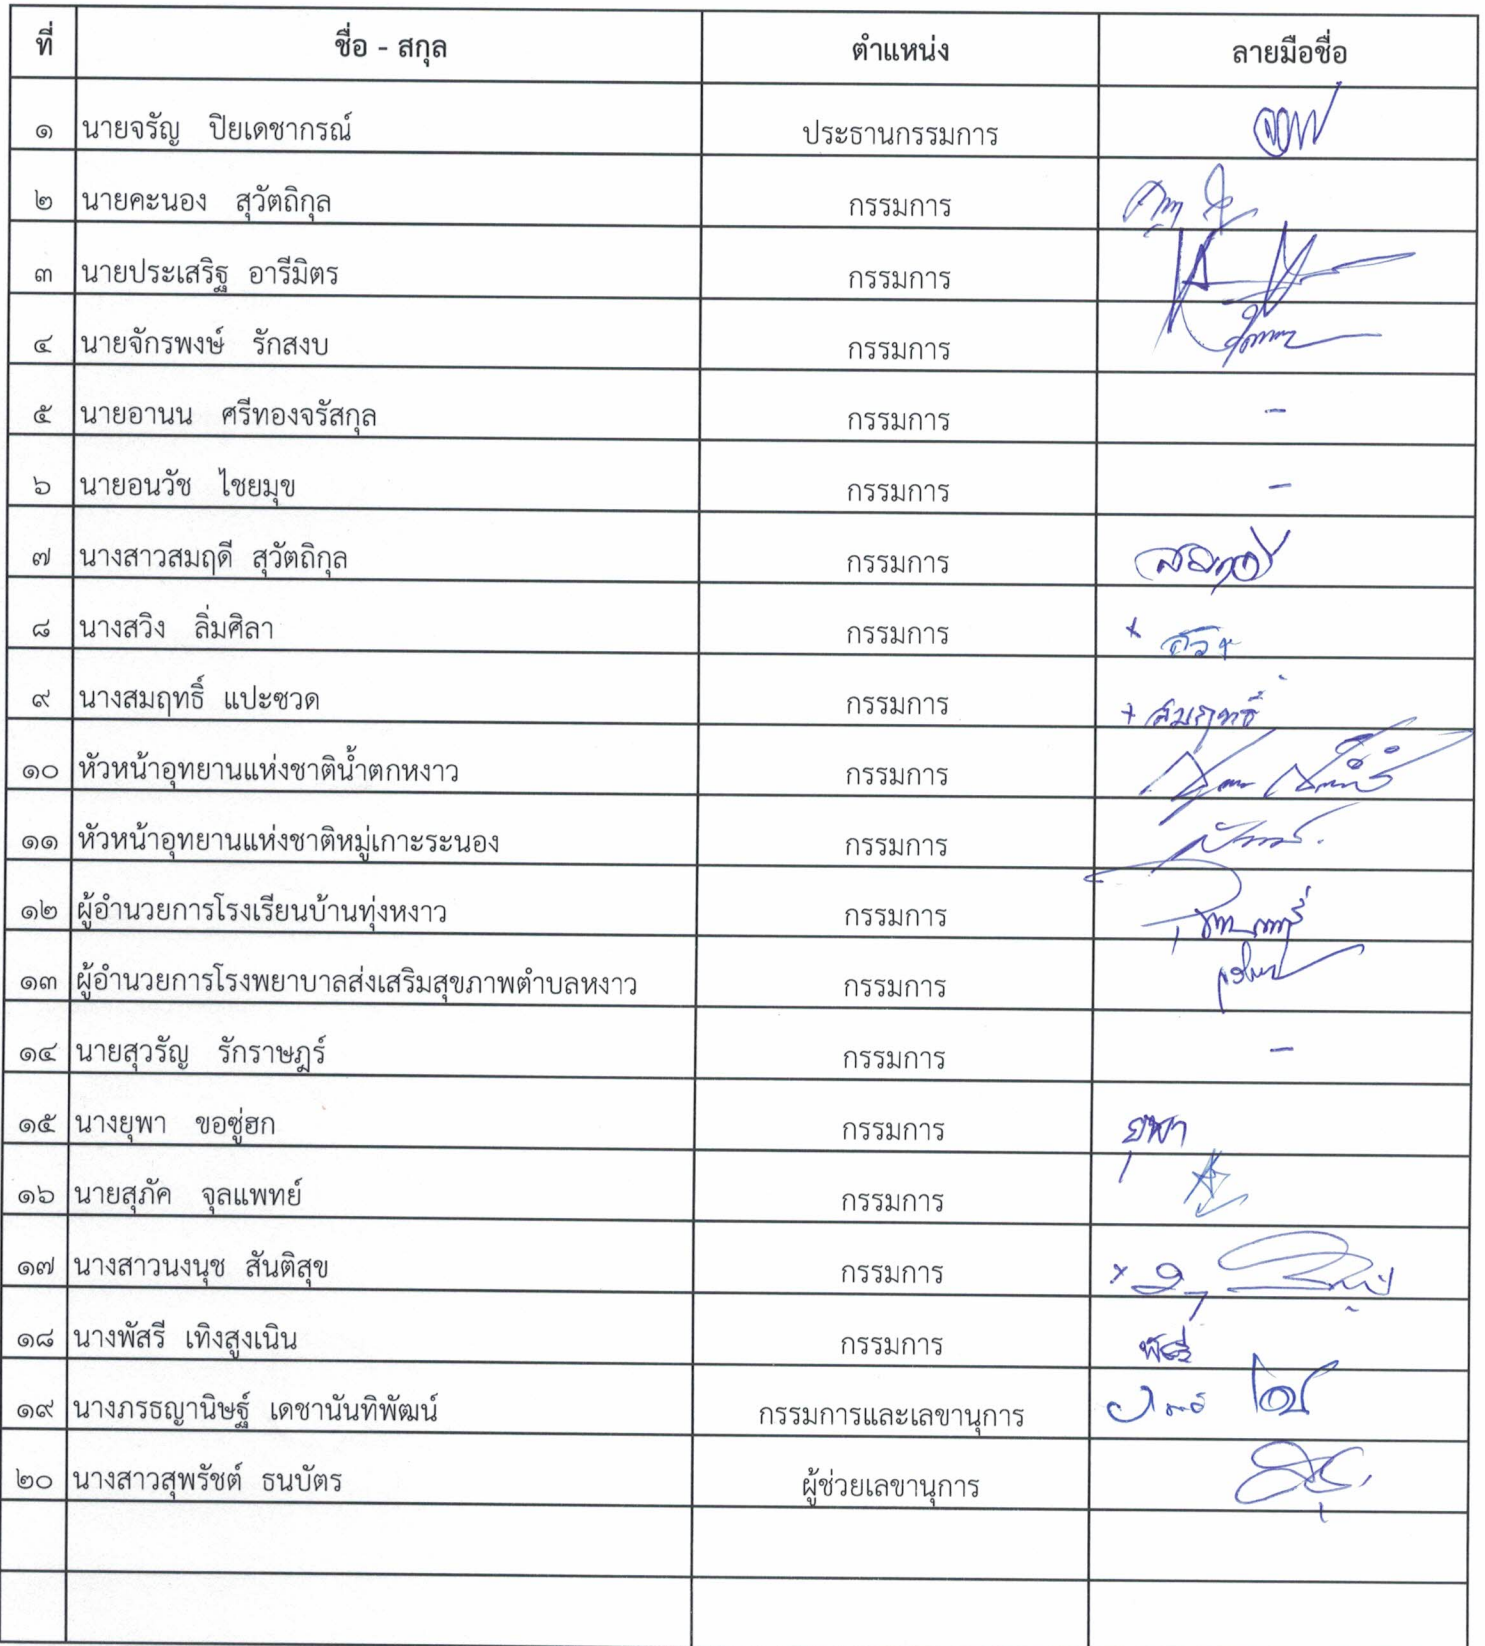 ที่ ชื่อ - สกุล ตำแหน่ง ลายมือชื่อ
๑ นายจรัญ ปิยเดชากรณ์ ประธานกรรมการ
๒ นายคะนอง สุวัตถิกุล กรรมการ
๓ นายประเสริฐ อารีมิตร กรรมการ
๔ นายจักรพงษ์ รักสงบ กรรมการ
๕ นายอานน ศรีทองจรัสกุล กรรมการ -
๖ นายอนวัช ไชยมุข กรรมการ -
๗ นางสาวสมฤดี สุวัตถิกุล กรรมการ สมฤดี
๘ นางสวิง ลิ่มศิลา กรรมการ ×
๙ นางสมฤทธิ์ แปะซวด กรรมการ + สมฤทธิ์
๑๐ หัวหน้าอุทยานแห่งชาติน้ำตกหงาว กรรมการ
๑๑ หัวหน้าอุทยานแห่งชาติหมู่เกาะระนอง กรรมการ
๑๒ ผู้อำนวยการโรงเรียนบ้านทุ่งหงาว กรรมการ
๑๓ ผู้อำนวยการโรงพยาบาลส่งเสริมสุขภาพตำบลหงาว กรรมการ
๑๔ นายสุวรัญ รักราษฎร์ กรรมการ -
๑๕ นางยุพา ขอซู่ฮก กรรมการ ยุพา
๑๖ นายสุภัค จุลแพทย์ กรรมการ
๑๗ นางสาวนงนุช สันติสุข กรรมการ ×
๑๘ นางพัสรี เทิงสูงเนิน กรรมการ พัสรี
๑๙ นางภรธญานิษฐ์ เดชานันทิพัฒน์ กรรมการและเลขานุการ
๒๐ นางสาวสุพรัชต์ ธนบัตร ผู้ช่วยเลขานุการ